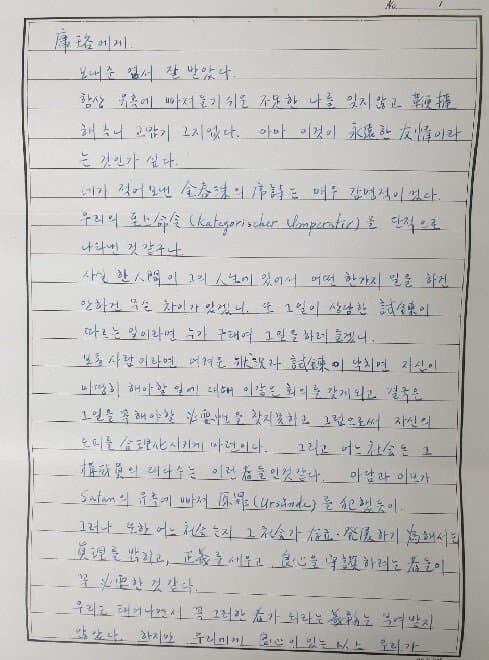 No. 1
席珞에게.
보내준 엽서 잘 받았다.
항상 유혹에 빠져들기 쉬운 不民한 나를 잊지않고 鞭撻
해 주니 고맙기 그지없다. 아마 이것이 永遠한 友情이라
는 것인가 싶다.
네가 적어보낸 金春洙의 序詩는 매우 감명적이었다.
우리의 至上命令(Kategorischer Imperativ)을 단적으로
나타낸 것 같구나.
사실 한 人間이 그의 人生에 있어서 어떤 한가지 일을 하건
안하건 무슨 차이가 있겠니. 또 그일이 상당한 試鍊이
따르는 일이라면 누가 구태여 그일을 하려 들겠니.
보통사람이라면 어려운 狀況과 試鍊이 닥치면 자신이
마땅히 해야할 일에 대해 이같은 회의를 갖게되고 결국은
그일을 꼭 해야할 必要性을 찾지못하고 그럼으로써 자신의
도피를 合理化시키게 마련이다. 그리고 어느 社會든 그
構成員의 대다수는 이런 者들인것같다. 아담과 이브가
Satan의 유혹에 빠져 原罪(Ursünde)를 犯했듯이.
그러나 또한 어느 社會든지 그 社會가 存立·發展하기 爲해서는
眞理를 밝히고, 正義를 세우고 良心을 守護하려는 者들이
꼭 必要한 것 같다.
우리는 태어나면서 꼭 그러한 者가 되라는 義務는 부여받지
않았다. 하지만 우리에게 良心이 있는 以上 우리가